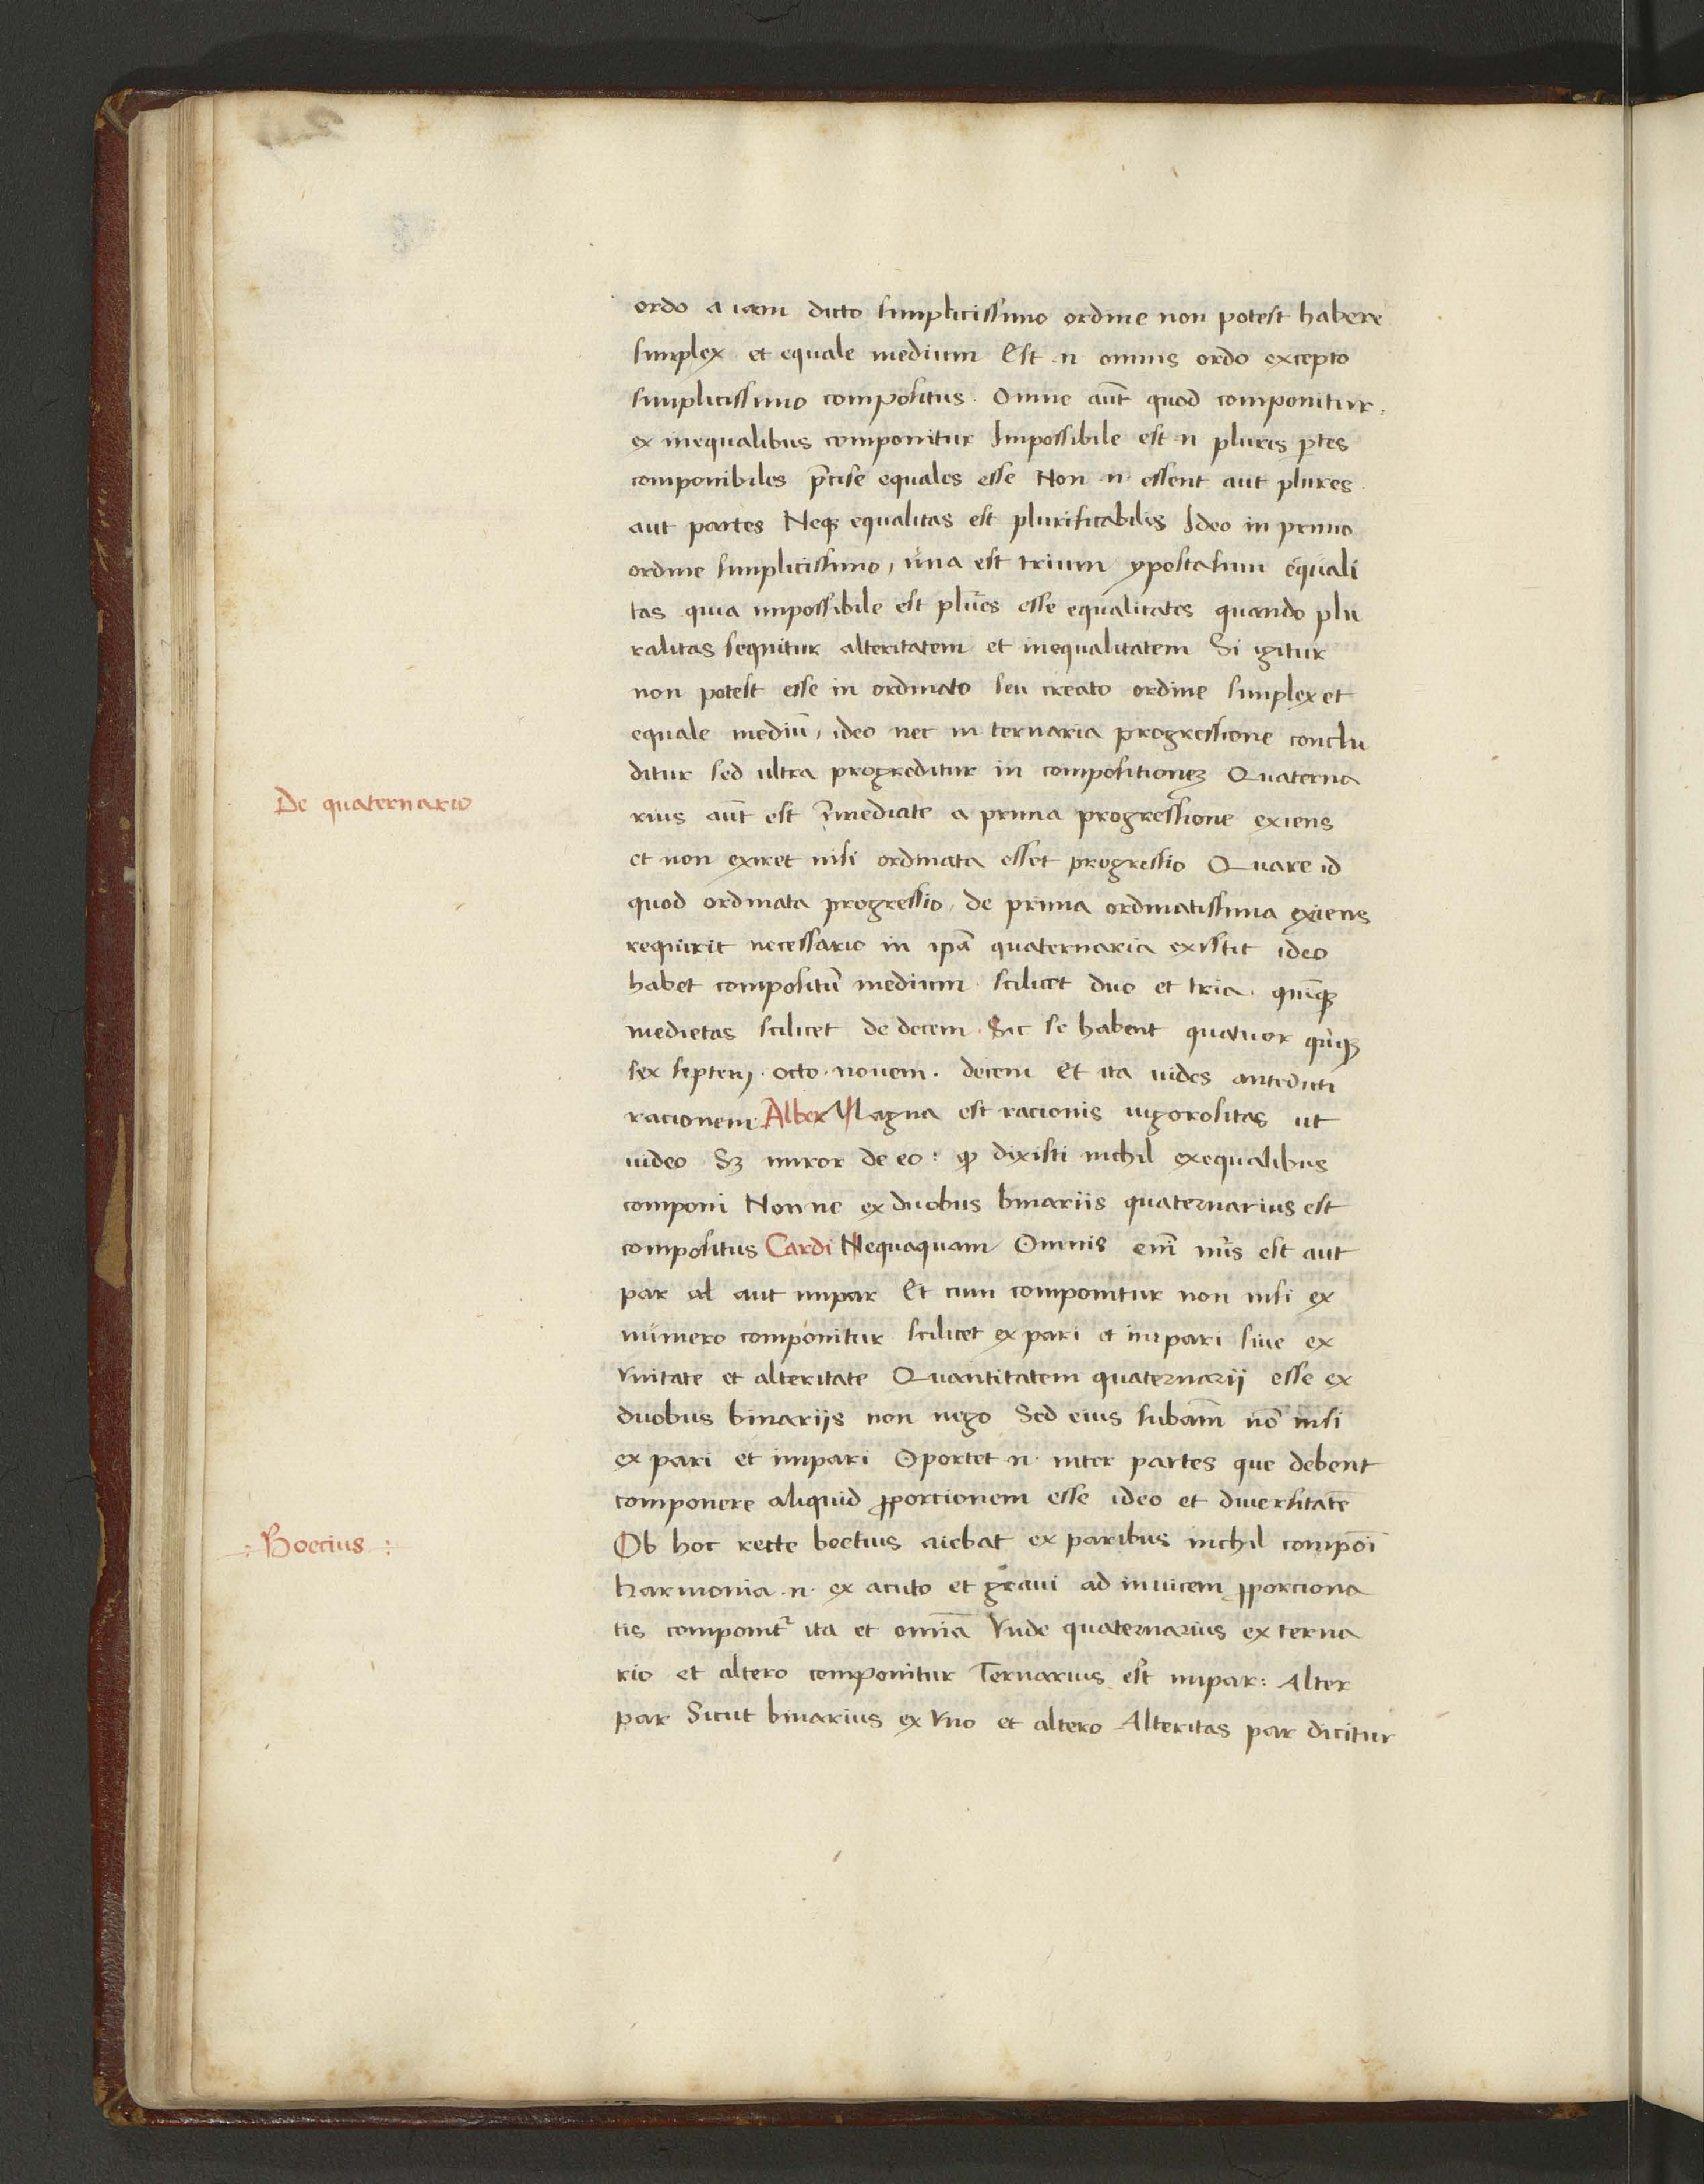 ordo a iam dicto simplicissimo ordine non potest habere
simplex et equale medium Est .n. omnis ordo excepto
simplicissimo compositus. Omne aut̄ quod componitur.
ex inequalibus componitur Impossibile est .n. plures ꝑtes
componibiles p̄cise equales esse Non .n. essent aut plures.
aut partes Neqꝫ equalitas est plurificabilis Ideo in primo
ordine simplicissimo, una est trium ypostasium equali
tas quia impossibile est plures esse equalitates quando plu
ralitas sequitur alteritatem et inequalitatem Si igitur
non potest esse in ordinato seu creato ordine simplex et
equale mediū, ideo nec in ternaria progressione conclu
ditur sed ultra progreditur in compositionēꝫ Quaterna
De quaternario
rius aut̄ est īmediate a prima progressione exiens
et non exiret nisi ordinata esset progressio Quare id
quod ordinata progressio, de prima ordinatissima exiens
requirit necessario in ip̄a quaternaria existit ideo
habet compositū medium scilicet duo et tria. quīqꝫ
medietas scilicet de decem. Sic se habent quatuor quīqꝫ
sex septem. octo. nouem. decem Et ita uides antedicti
racionem Alber Magna est racionis uigorositas ut
uideo Sꝫ miror de eo: ꝙ dixisti nichil ex equalibus
componi Non ne ex duobus binariis quaternarius est
compositus Cardi Nequaquam Omnis em̄ nūs est aut
par al aut impar Et cum componitur non nisi ex
numero componitur scilicet ex pari et impari siue ex
vnitate et alteritate Quantitatem quaternarij esse ex
duobus binarijs non nego Sed eius subām nō nisi
ex pari et impari Oportet .n. inter partes que debent
componere aliquid ꝓporcionem esse ideo et diuersitatē
.: Boecius :.
Ob hoc recte boetius aiebat ex paribus nichil compōi
harmonia .n. ex acuto et graui ad inuicem ꝓporciona
tis componit᷑ ita et omīa Vnde quaternarius ex terna
rio et altero componitur Ternarius est impar: Alter
par Sicut binarius ex vno et altero Alteritas par dicitur